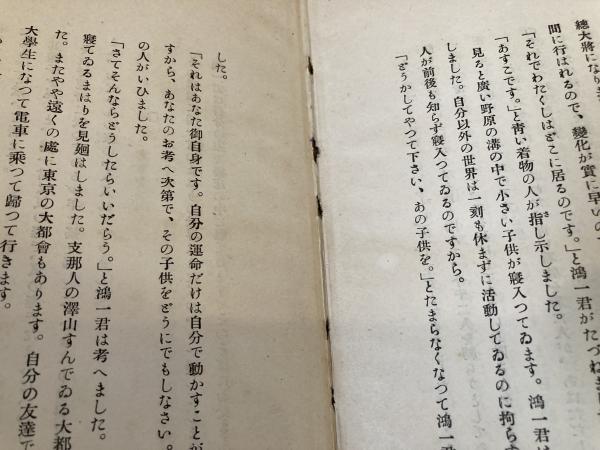 總大將になりま
間に行はれるので、變化が實に早いの
「それでわたくしはどこに居るのです。」と鴻一君がたづねま
「あすこです。」と靑い着物の人が指し示しました。
見ると廣い野原の溝の中で小さい子供が寢入つてゐます。鴻一君は
しました。自分以外の世界は一刻も休まずに活動してゐるのに拘らず
人が前後も知らず寢入つてゐるのですから。
「どうかしてやつて下さい、あの子供を。」とたまらなくなつて鴻一君
した。
「それはあなた御自身です。自分の運命だけは自分で動かすことが
すから、あなたのお考へ次第で、その子供をどうにでもしなさい。
の人がいひました。
「さてそんならどうしたらいいだらう。」と鴻一君は考へました。
寢てゐるまはりを見廻はしました。支那人の澤山すんでゐる大都
た。またやや遠くの處に東京の大都會もあります。自分の友達で
大學生になつて電車に乘つて歸つて行きます。